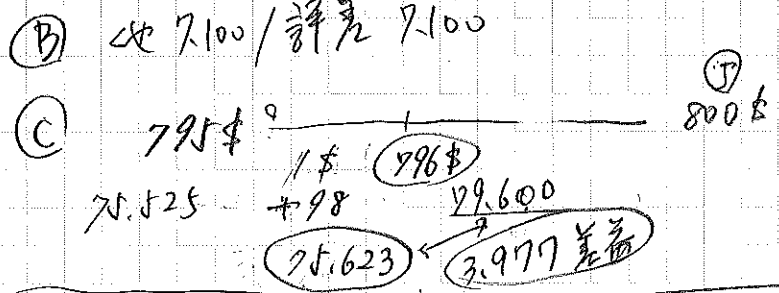 Ⓑ 他 7.100 / 評差 7.100
Ⓙ
Ⓒ 795$ 800$
1$ 796$
75.525 +98 79.600
75.623 3.977 差益